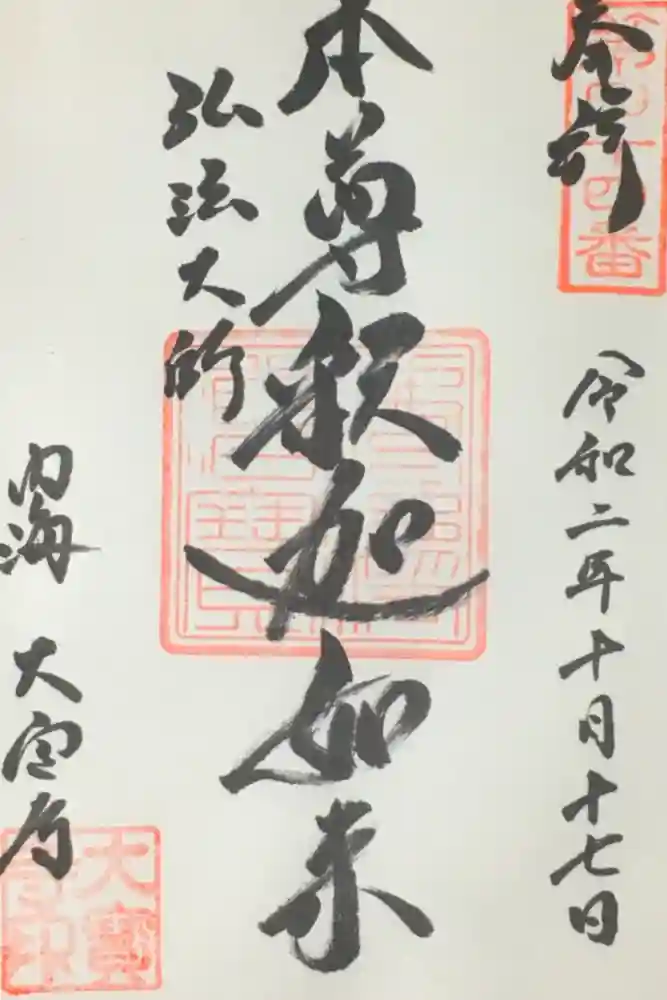 第四十四番
令和二年十月十七日
本尊釈迦如来
弘法大師
内海 大宝寺
大寶寺印